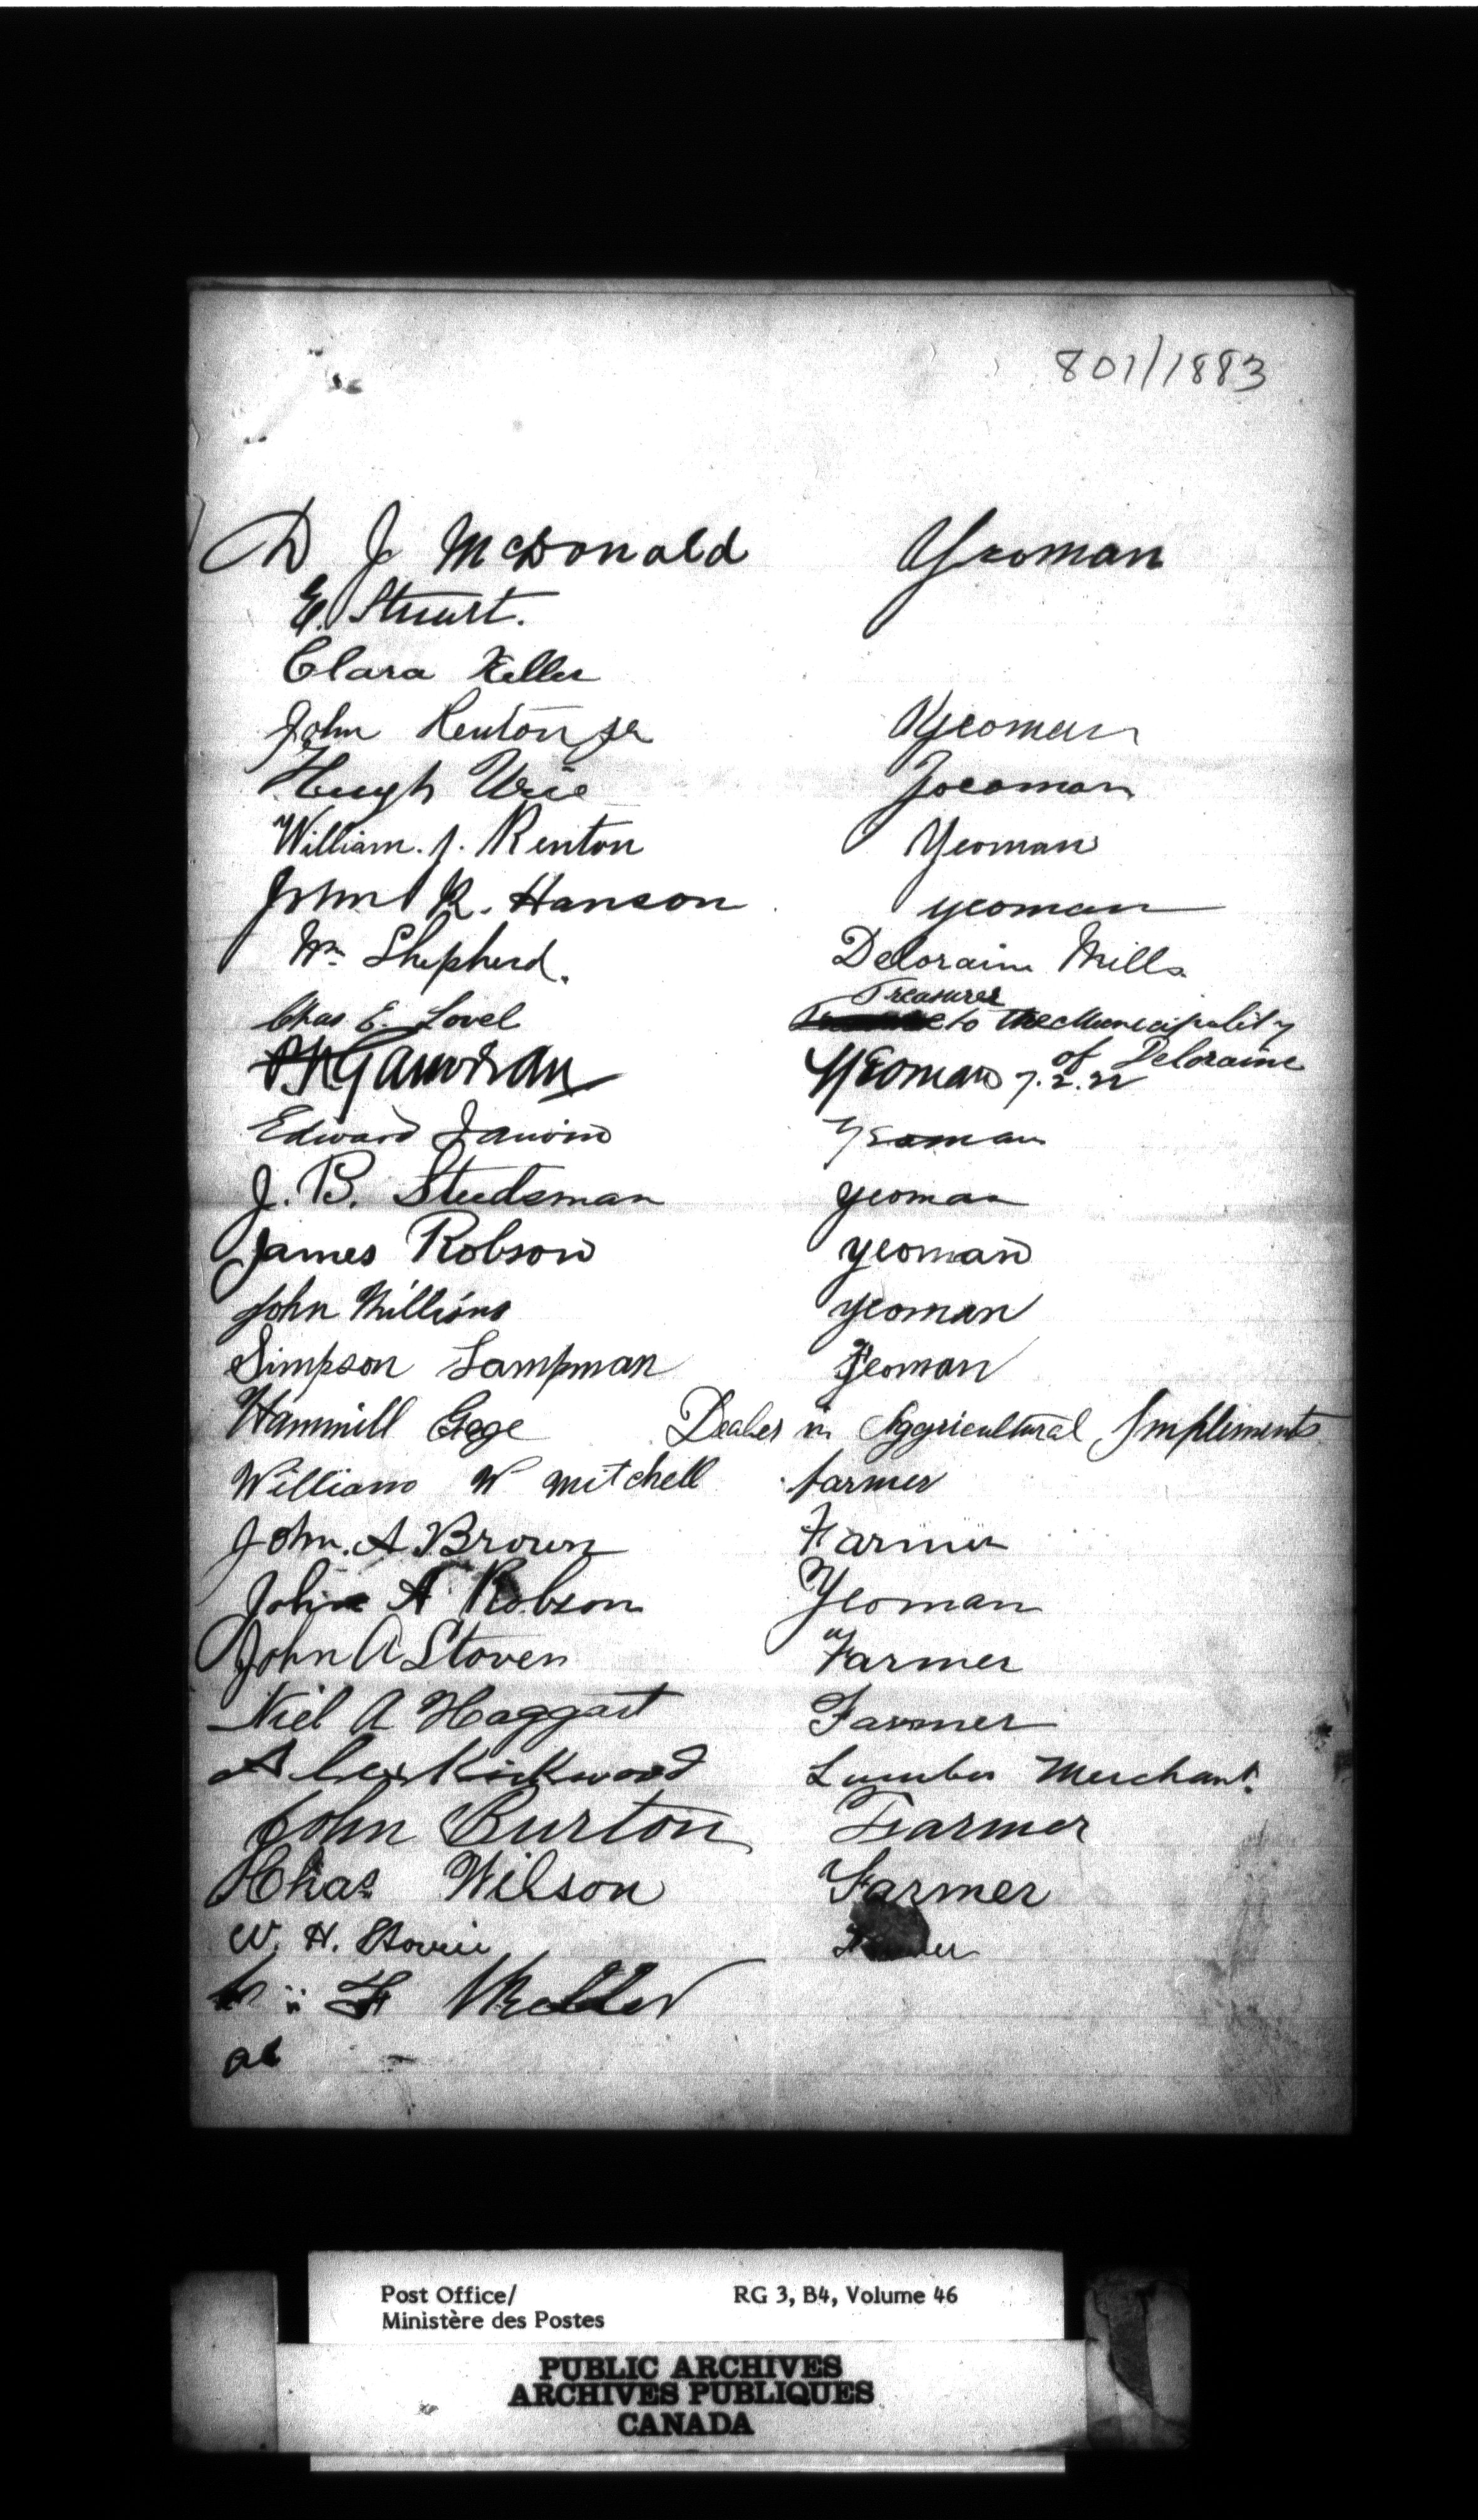 801/1883
D J McDonald Yeoman
E. Stuart.
Clara Keller
John Renton Jr Yeoman
Hugh Urie Yoeoman
William. J. Renton Yeoman
John R. Hanson yeoman
Wm Shepherd. Deloraine Mills
Treasurer
Chas E. Lovel to the Municipality
of Deloraine
Yeoman 7.2.22
Edward Yeoman
J. B. Steedsman yeoman
James Robson yeoman
John Millions yeoman
Simpson Lampman Yeoman
Hammill Gage Dealer in Aggricultural Impliments
William W Mitchell farmer
John. A Brown Farmer
John A Robson Yeoman
John A Stoven Farmer
Niel A Haggart Farmer
Alex Kirkwood Lumber Merchant.
John Burton Farmer
Chas Wilson Farmer
W. H.
F Keller
Post Office/ RG 3, B4, Volume 46
Ministère des Postes
PUBLIC ARCHIVES
ARCHIVES PUBLIQUES
CANADA